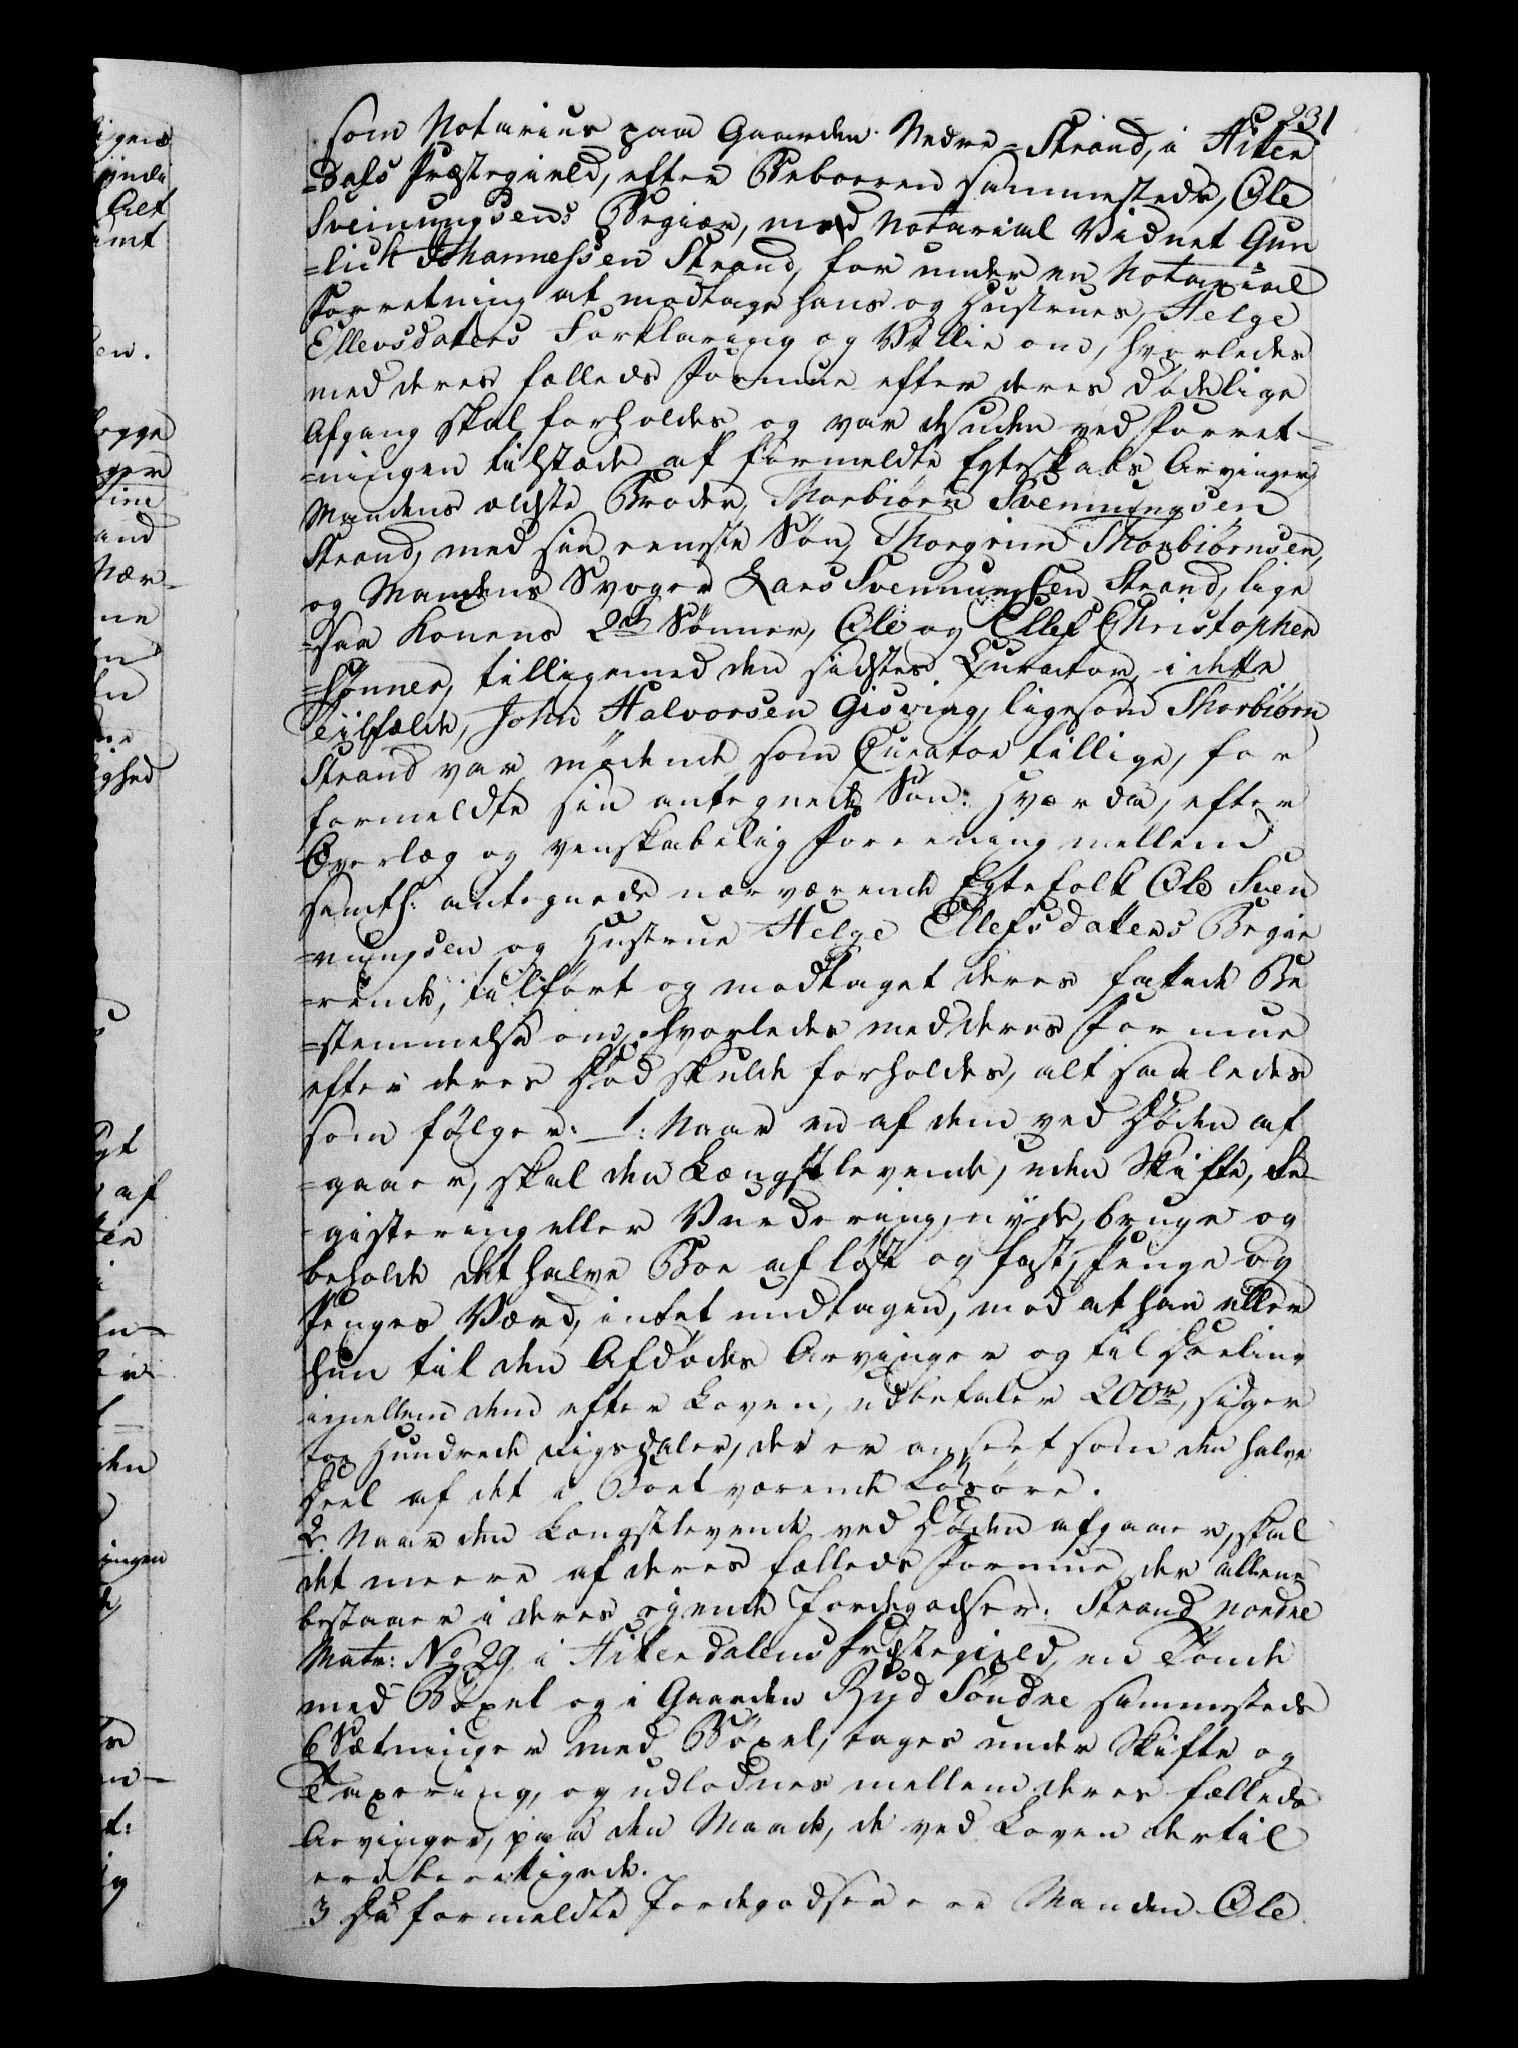 231
som Notarius paa Gaarden Nedre-Strand, i Hiter
=dals Præstegield, efter Beboeren sammesteds, Ole
Sveinungsens Begiær, med Notarial Vidnet Gun
=lich Johannessen Strand, for under en Notarial
Forretning at modtage hans og Hustrues, Helge
Ellevsdaters Forklaring og Villie om, hvorledes
med deres fælleds Formue efter deres dødelige
Afgang skal forholdes og var desuden ved Forret-
=ningen tilstæde af formeldte Egteskabs Arvinger,
Mandens ældste Broder, Thorbiørn Svennungsen
Strand, med sin eneste Søn, Thorgrim Thorbiørnsen,
og Mandens Svoger Lars Svennungsen Strand, lige
=saa Konens 2de Sønner, Ole og Ellef Christopher
=Sønner, tilligemed den sidstes Curator, i dette
Tilfælde, John Halvorsen Gisving, ligesom Thorbiørn
Strand var mødende som Curator tillige, for
formeldte sin antegnede Søn: Hvor da, efter
Overlæg og venskabelig Foreening mellem
samtl: antegnede nærværende Egtefolk Ole Sven
=nungsen og Hustrue Helge Ellefsdatters Begiæ
=rende, tilført og modtaget deres fattede Be
=stemmelse om, hvorledes med deres Formue
efter deres Død skulde forholdes, alt saaledes
som følger: 1: Naar en af dem ved Døden af
=gaaer, skal den Længstlevende, uden Skifte, Re-
=gistering eller Vurdering, nyde, bruge og
beholde det halve Boe af løst og fast, Penge og
Penges Værd, intet undtagen, mod at han eller
hun til den Afdødes Arvinger og til Deeling
imellem dem efter Loven, udbetaler 200rd, siger
too Hundrede Rigsdaler, der er anseet som den halve
Deel af det i Boet værende Løsøre.
2. Naar den Længstlevende ved Døden afgaaer, skal
det meere af deres fælleds Formue, der allene
bestaaer i deres eyende Jordegodser: Strand nordre
Matr: No 29 i Hiterdalens Præstegield, en Tønde
med Bøxel og i Gaarden Ryd Søndre sammesteds
6 Sætninger med Bøxel, tages under Skifte og
Taxering, og udlodnes mellem deres fælleds
Arvinger, paa den Maade, de ved Loven dertil
ere berettigede.
3 Da formeldte Jordegodser ere Manden Ole